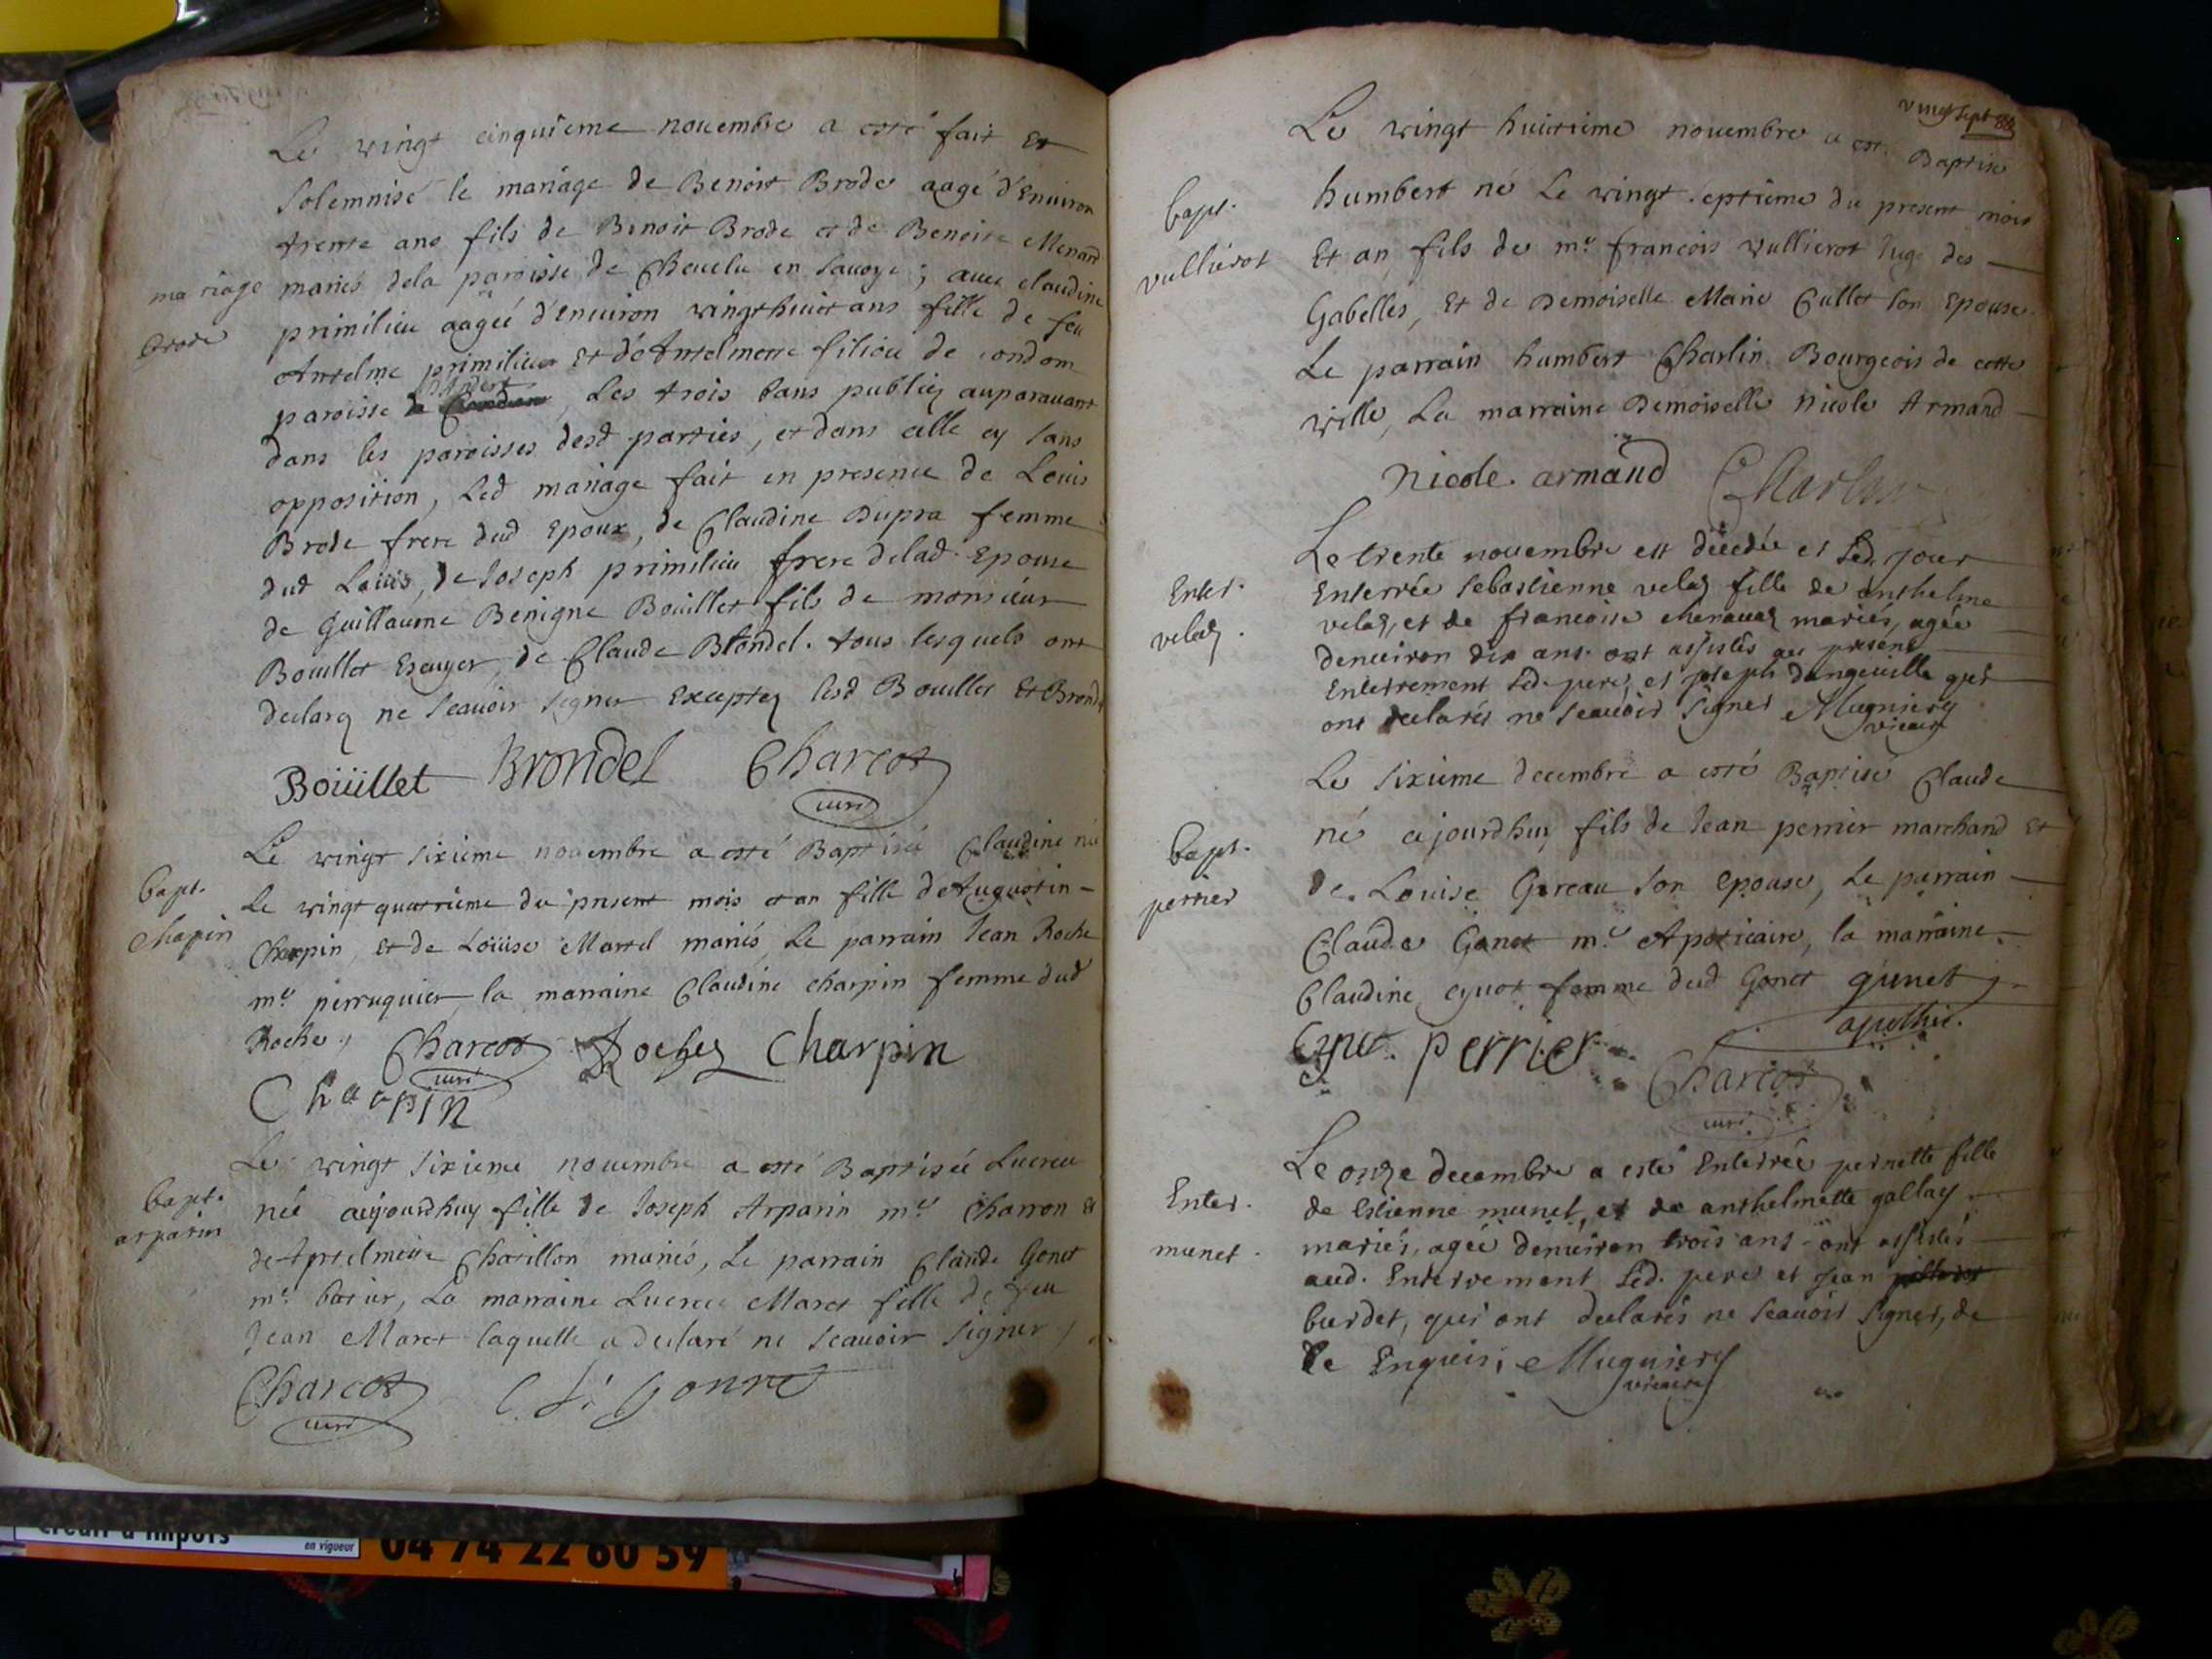 Le vingt cinquieme novembre a esté fait Et
Solemnisé le mariage de Benoit Brode aagé d'Environ
trente ans fils de Benoit Brode et de Benoite Menard
mariage
mariés dela paroisse de Chevelu en Savoye; avec claudine
Brode
primilieu aageé d'environ vingt huit ans fille de feu
Antelme primilieu Et d'Antelmette filiou de condom
paroisse d'Andert, Les trois bans publiez auparavant
dans les paroisses desd parties, et dans celle cy sans
opposition, Led mariage fait en presence de Louis
Brode frere dud Epoux, de Claudine Dupra femme
dud Louis, de Joseph primilieu frere delad. Epouse
de Guillaume Benigne Bouillet fils de monsieur
Bouillet Escuyer, de Claude Blondel. tous lesquels ont
declaré ne Scavoir signer Exceptez lesd Bouillet Et Brondel
Boüillet Brondel Charcot
curé
Le vingt sixieme novembre a esté Baptisée Claudine née
bapt.
Le vingt quatrieme du present mois et an fille d'Augustin
Chapin
Charpin, Et de Loüise Martel mariés, Le parrain Jean Roche
me. perruquier, la marraine Claudine charpin femme dud
Roche.
Charcot Roches Charpin
curé
Charpin
Le vingt sixieme novembre a esté Baptisée Lucrece
bapt.
née aujourdhuy fille de Joseph Arparin me. charron &
arparin
de Antelmette Charillon mariés, Le parrain Claude Gonet
me. , La marraine Lucrece Maret fille de feu
Jean Maret laquelle a declaré ne Scavoir signer
Charcot
curé
vingt sept
88
Le vingt huitieme novembre a esté Baptisé
bapt.
humbert né Le vingt septieme du present mois
vullierot
Et an fils de me. francois vullierot Juge des
Gabelles, Et de Demoiselle Marie Cullet son Epouse.
Le parrain humbert Charlin Bourgeois de cette
ville, La marraine Demoiselle Nicole Armand
Nicole. armand Charlin
Le trente novembre est décedée et led. jour
Enter.
Enterrée Sebastienne velaz fille de anthelme
velaz.
velaz, et de francoise chenavaz mariés, agée
denviron dix ans. ont assistés au present
Enterrement led. pere, et joseph dangeville qui
ont declarés ne scavoir signer Mugniery
vicaire
Le sixieme decembre a esté Baptisé Claude
né cejourdhuy fils de Jean perrier marchand Et
bapt.
perrier
de Louise Gareau son epouse, Le parrain
Claude Gonet me. Apoticaire, la marraine
Claudine cyvot femme dud Gonet gunet
apothic.
perrier
Charcot
curé
Le onze decembre a esté Enterrée pernette fille
Enter.
de Estienne munet, et de anthelmette gallay
munet.
mariés, agée denviron trois ans ont assistés
aud. Enterrement led. pere et jean
burdet, qui ont declarés ne scavoir signer, de
ce Enquis. Mugniery
vicaire
credit d'impots
en vigueur
04 74 22 60 59